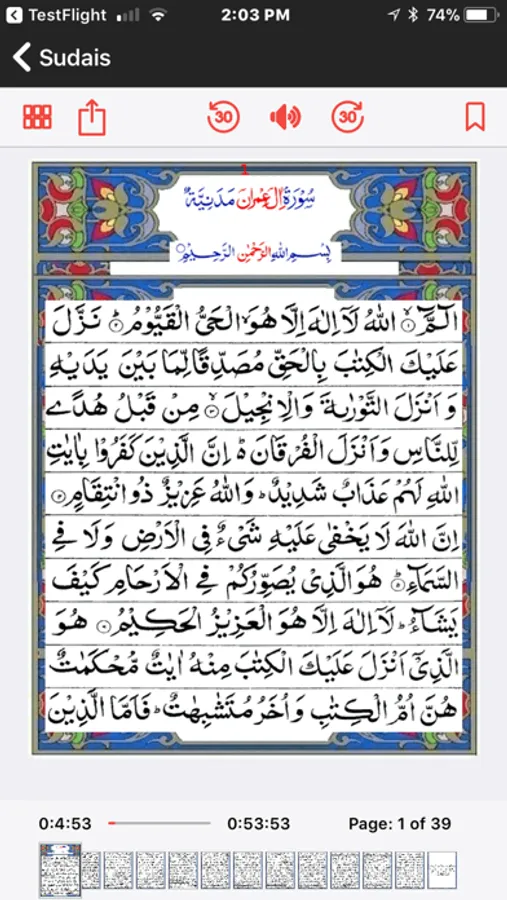 TestFlight 2:03 PM 74%
Sudais
30 30
1
سُوْرَةُ اٰلِ عِمْرٰنَ مَدَنِيَّةٌ
بِسْمِ اللّٰهِ الرَّحْمٰنِ الرَّحِيْمِ
الٓمّٓ ۙ اللّٰهُ لَاۤ اِلٰهَ اِلَّا هُوَ الْحَىُّ الْقَيُّوْمُ ؕ نَزَّلَ
عَلَيْكَ الْكِتٰبَ بِالْحَقِّ مُصَدِّقًا لِّمَا بَيْنَ يَدَيْهِ
وَاَنْزَلَ التَّوْرٰىةَ وَالْاِنْجِيْلَ ۙ مِنْ قَبْلُ هُدًى
لِّلنَّاسِ وَاَنْزَلَ الْفُرْقَانَ ؕ اِنَّ الَّذِيْنَ كَفَرُوْا بِاٰيٰتِ
اللّٰهِ لَهُمْ عَذَابٌ شَدِيْدٌ ؕ وَاللّٰهُ عَزِيْزٌ ذُو انْتِقَامٍ
اِنَّ اللّٰهَ لَا يَخْفٰى عَلَيْهِ شَىْءٌ فِى الْاَرْضِ وَلَا فِى
السَّمَآءِ ؕ هُوَ الَّذِىْ يُصَوِّرُكُمْ فِى الْاَرْحَامِ كَيْفَ
يَشَآءُ ؕ لَاۤ اِلٰهَ اِلَّا هُوَ الْعَزِيْزُ الْحَكِيْمُ هُوَ
الَّذِىْۤ اَنْزَلَ عَلَيْكَ الْكِتٰبَ مِنْهُ اٰيٰتٌ مُّحْكَمٰتٌ
هُنَّ اُمُّ الْكِتٰبِ وَاُخَرُ مُتَشٰبِهٰتٌ ؕ فَاَمَّا الَّذِيْنَ
0:4:53 0:53:53 Page: 1 of 39